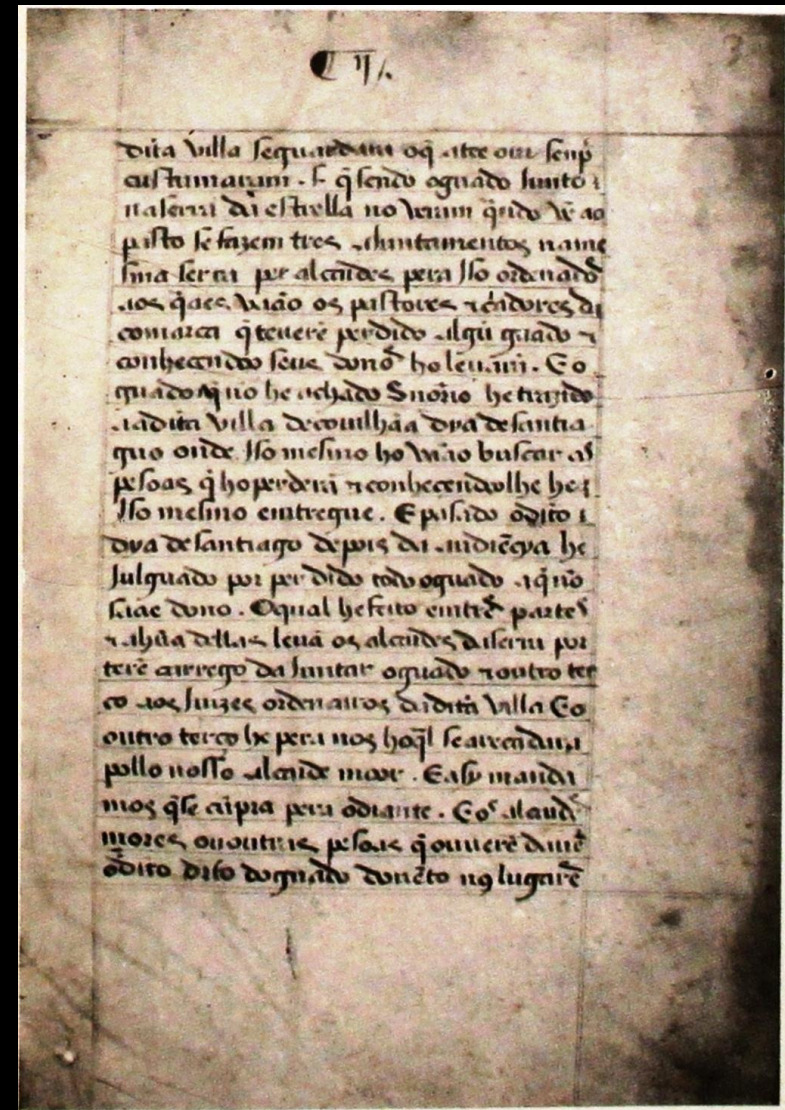 dita villa se guardara o q̃ atee ora senp̃
custumaram . s. q̃ sendo o guado Junto
na serra da estrella no veram q̃ndo vẽ ao
pasto se fazem tres aJuntamentos na me
sma serra per alcaides pera Jso ordenados
aos q̃aes virão os pastores e criadores da
comarca q̃ teuerẽ perdido algũ guado e
conhecendoo seus donos ho leuam . E o
guado q̃ no he achado Snõrio he trazido
aa dita villa de couilhãa dya de santia
guo onde Jso mesmo ho virão buscar as
pesoas q̃ ho perderã e conhecendolhe he
Jso mesmo emtregue . E pasado o dito
dya de santiago depois da audiẽcya he
Julguado por perdido todo o guado a q̃ nõ
saae dono . O qual he feito em tres partes
e a hũa dellas leuã os alcaides da serra por
terẽ carrego daJuntar o guado e outro ter
ço aos Juizes ordenairos da dita villa E o
outro terço he pera nos ho q̃l se arrendaua
pollo nosso alcaide moor . E asy manda
mos q̃ se cũpra pera o diante . E os alcaides
mores ou outras pesoas q̃ ouuerẽ dauer
o dito dito do guado do vẽto nos lugares